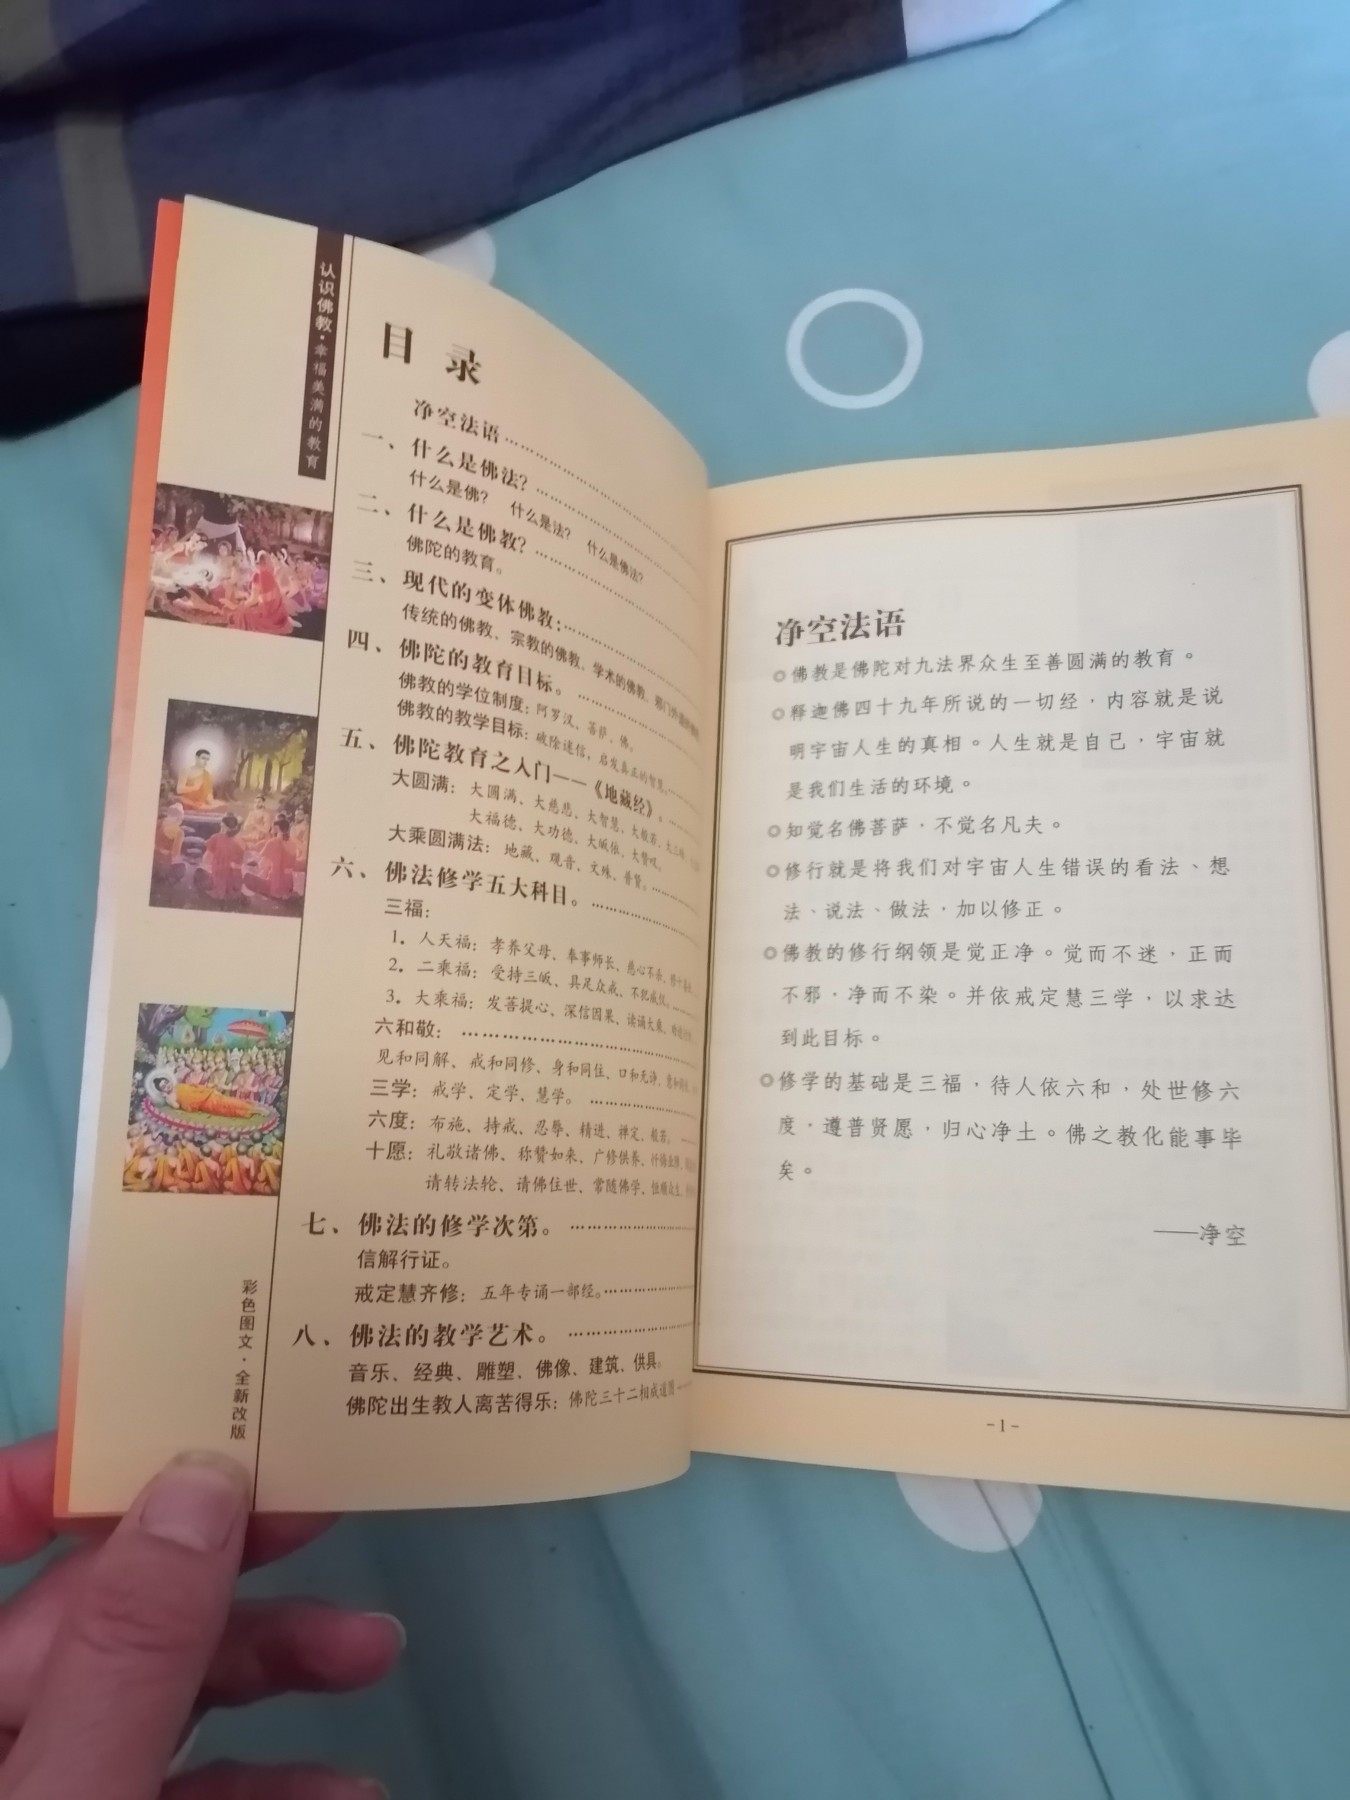 认识佛教·幸福美满的教育
目 录
净空法语
一、什么是佛法?
什么是佛? 什么是法? 什么是佛法?
二、什么是佛教?
佛陀的教育。
三、现代的变体佛教:
传统的佛教、宗教的佛教、学术的佛教、
四、佛陀的教育目标。
佛教的学位制度:阿罗汉、菩萨、佛。
佛教的教学目标:破除迷信,启发真正的智慧。
五、佛陀教育之入门——《地藏经》。
大圆满:大圆满、大慈悲、大智慧、大般若、
大福德、大功德、大皈依、大赞叹。
大乘圆满法:地藏、观音、文殊、普贤。
六、佛法修学五大科目。
三福:
1. 人天福:孝养父母、奉事师长、慈心不杀、
2. 二乘福:受持三皈、具足众戒、不犯威仪。
3. 大乘福:发菩提心、深信因果、读诵大乘、
六和敬:
见和同解、戒和同修、身和同住、口和无诤、
三学:戒学、定学、慧学。
六度:布施、持戒、忍辱、精进、禅定、般若。
十愿:礼敬诸佛、称赞如来、广修供养、忏悔业障、
请转法轮、请佛住世、常随佛学、恒顺众生、
七、佛法的修学次第。
信解行证。
戒定慧齐修:五年专诵一部经。
八、佛法的教学艺术。
音乐、经典、雕塑、佛像、建筑、供具。
佛陀出生教人离苦得乐:佛陀三十二相成道图
彩色图文·全新改版
净空法语
◎佛教是佛陀对九法界众生至善圆满的教育。
◎释迦佛四十九年所说的一切经,内容就是说
明宇宙人生的真相。人生就是自己,宇宙就
是我们生活的环境。
◎知觉名佛菩萨,不觉名凡夫。
◎修行就是将我们对宇宙人生错误的看法、想
法、说法、做法,加以修正。
◎佛教的修行纲领是觉正净。觉而不迷,正而
不邪,净而不染。并依戒定慧三学,以求达
到此目标。
◎修学的基础是三福,待人依六和,处世修六
度,遵普贤愿,归心净土。佛之教化能事毕
矣。
——净空
-1-